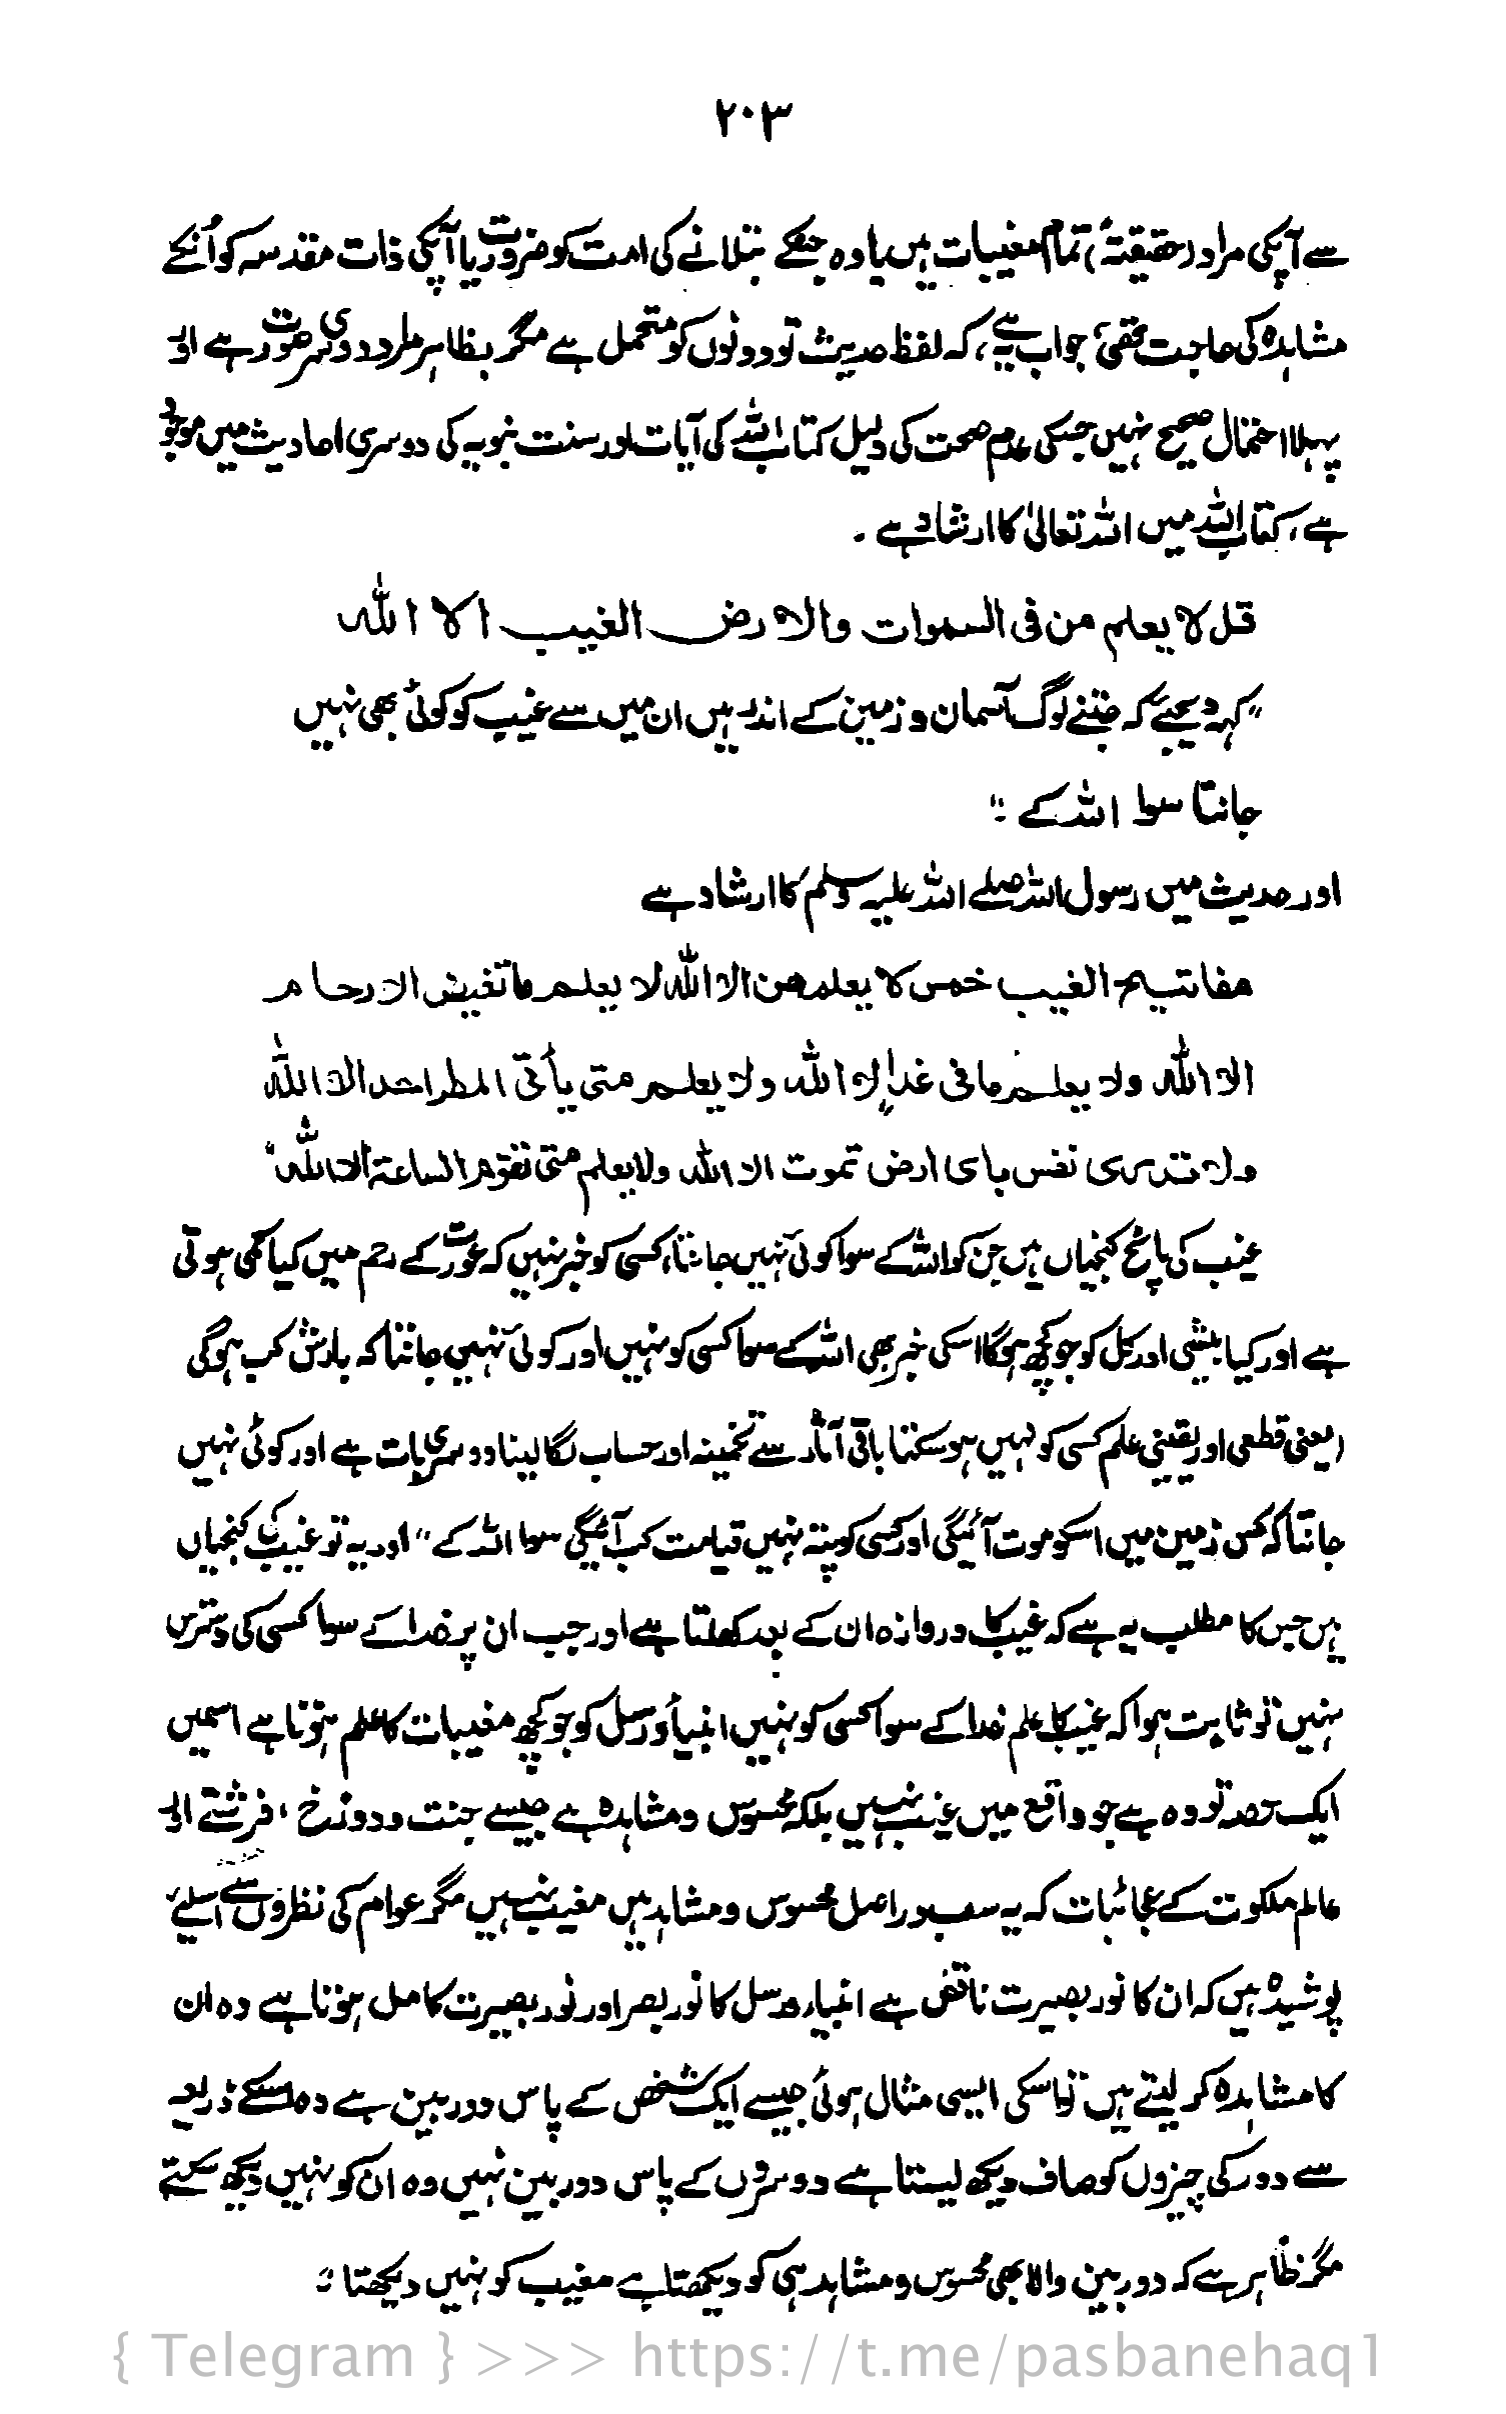 ۲۰۳
سے آپکی مراد (حقیقتہً) تمام مغیبات ہیں یا وہ جنکے بتلانے کی امت کو ضرورت یا آپکی ذات مقدسہ کو اُنکے
مشاہدہ کی حاجت تھی، جواب یہ ہے، کہ لفظ حدیث تو دونوں کو متحمل ہے مگر بظاہر مراد دوسری صورت ہے اور
پہلا احتمال صحیح نہیں جسکی عدم صحت کی دلیل کتاب اللہ کی آیات اور سنت نبویہ کی دوسری احادیث میں موجود
ہے، کتاب اللہ میں اللہ تعالیٰ کا ارشاد ہے ۔
قل لا یعلم من فی السموات والارض الغیب الا اللہ
"کہہ دیجئے کہ جتنے لوگ آسمان و زمین کے اندر ہیں ان میں سے غیب کو کوئی بھی نہیں
جانتا سوا اللہ کے ؞"
اور حدیث میں رسول اللہ صلے اللہ علیہ وسلم کا ارشاد ہے
مفاتیح الغیب خمس لا یعلمھن الا اللہ لا یعلم ما تغیض الارحام
الا اللہ ولا یعلم ما فی غد إلا اللہ ولا یعلم متی یأتی المطر احد الا اللہ
ولا تدری نفس بای ارض تموت الا اللہ ولا یعلم متی تقوم الساعۃ الا اللہ"
غیب کی پانچ کنجیاں ہیں جن کو اللہ کے سوا کوئی نہیں جانتا، کسی کو خبر نہیں کہ عورت کے رحم میں کیا کمی ہوتی
ہے اور کیا بیشی اور کل کو جو کچھ ہوگا اسکی خبر بھی اللہ کے سوا کسی کو نہیں اور کوئی نہیں جانتا کہ بارش کب ہوگی
(یعنی قطعی اور یقینی علم کسی کو نہیں ہو سکتا باقی آثار سے تخمینہ اور حساب لگا لینا دوسری بات ہے اور کوئی نہیں
جانتا کہ کس زمین میں اسکو موت آئیگی اور کسی کو پتہ نہیں قیامت کب آئیگی سوا اللہ کے" اور یہ تو غیب کی کنجیاں
ہیں جس کا مطلب یہ ہے کہ غیب کا دروازہ ان کے بعد کھلتا ہے اور جب ان پر خدا کے سوا کسی کی دسترس
نہیں تو ثابت ہوا کہ غیب کا علم خدا کے سوا کسی کو نہیں انبیأ ورسل کو جو کچھ مغیبات کا علم ہوتا ہے اسمیں
ایک حصہ تو وہ ہے جو واقع میں غیب نہیں بلکہ محسوس و مشاہد ہے جیسے جنت و دوزخ ، فرشتے اور
عالم ملکوت کے عجائبات کہ یہ سب دراصل محسوس و مشاہد ہیں مغیب نہیں مگر عوام کی نظروں سے اسلیے
پوشیدہ ہیں کہ ان کا نور بصیرت ناقص ہے انبیاء ورسل کا نور بصر اور نور بصیرت کامل ہوتا ہے وہ ان
کا مشاہدہ کر لیتے ہیں تو اسکی ایسی مثال ہوئی جیسے ایک شخص کے پاس دوربین ہے وہ اسکے ذریعہ
سے دور کی چیزوں کو صاف دیکھ لیتا ہے دوسروں کے پاس دوربین نہیں وہ ان کو نہیں دیکھ سکتے
مگر ظاہر ہے کہ دوربین والا بھی محسوس و مشاہد ہی کو دیکھتا ہے مغیب کو نہیں دیکھتا ؞
{ Telegram } >>> https://t.me/pasbanehaq1